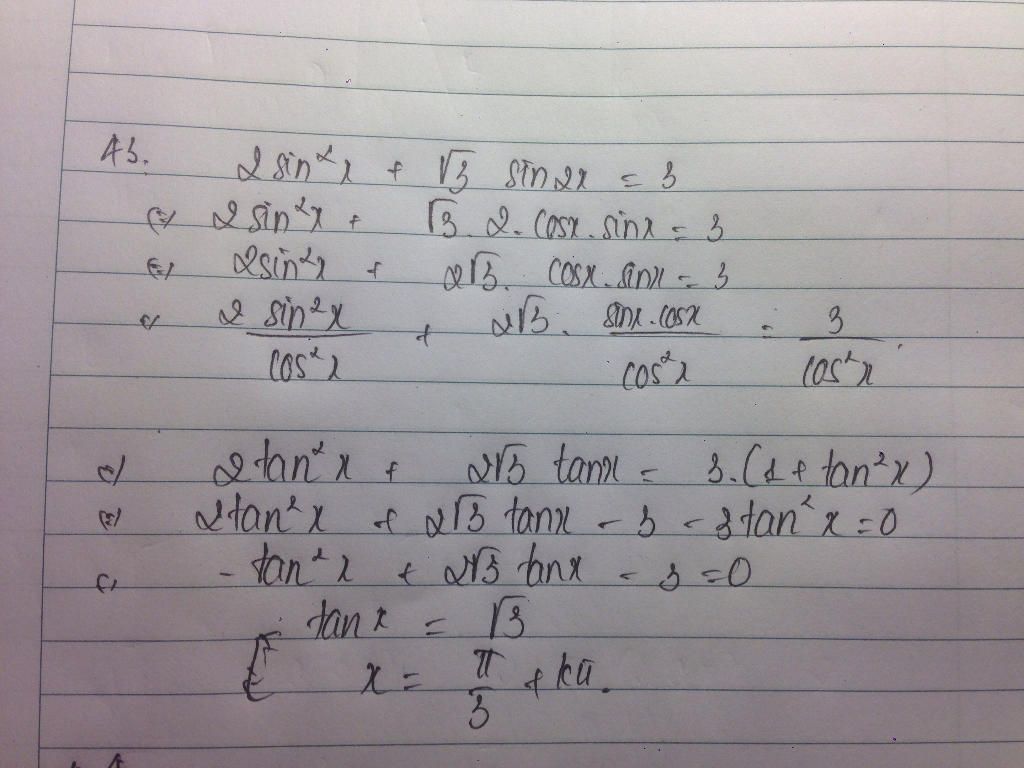 A3. 2sin²x + √3 sin2x = 3
(=) 2sin²x + √3. 2. cosx. sinx = 3
(=) 2sin²x + 2√3. cosx. sinx = 3
(=) 2 sin²x / cos²x + 2√3. sinx.cosx / cos²x = 3 / cos²x.
(=) 2tan²x + 2√3 tanx = 3.(1 + tan²x)
(=) 2tan²x + 2√3 tanx - 3 - 3tan²x = 0
(=) -tan²x + 2√3 tanx - 3 = 0
tanx = √3
x = π/3 + kπ.